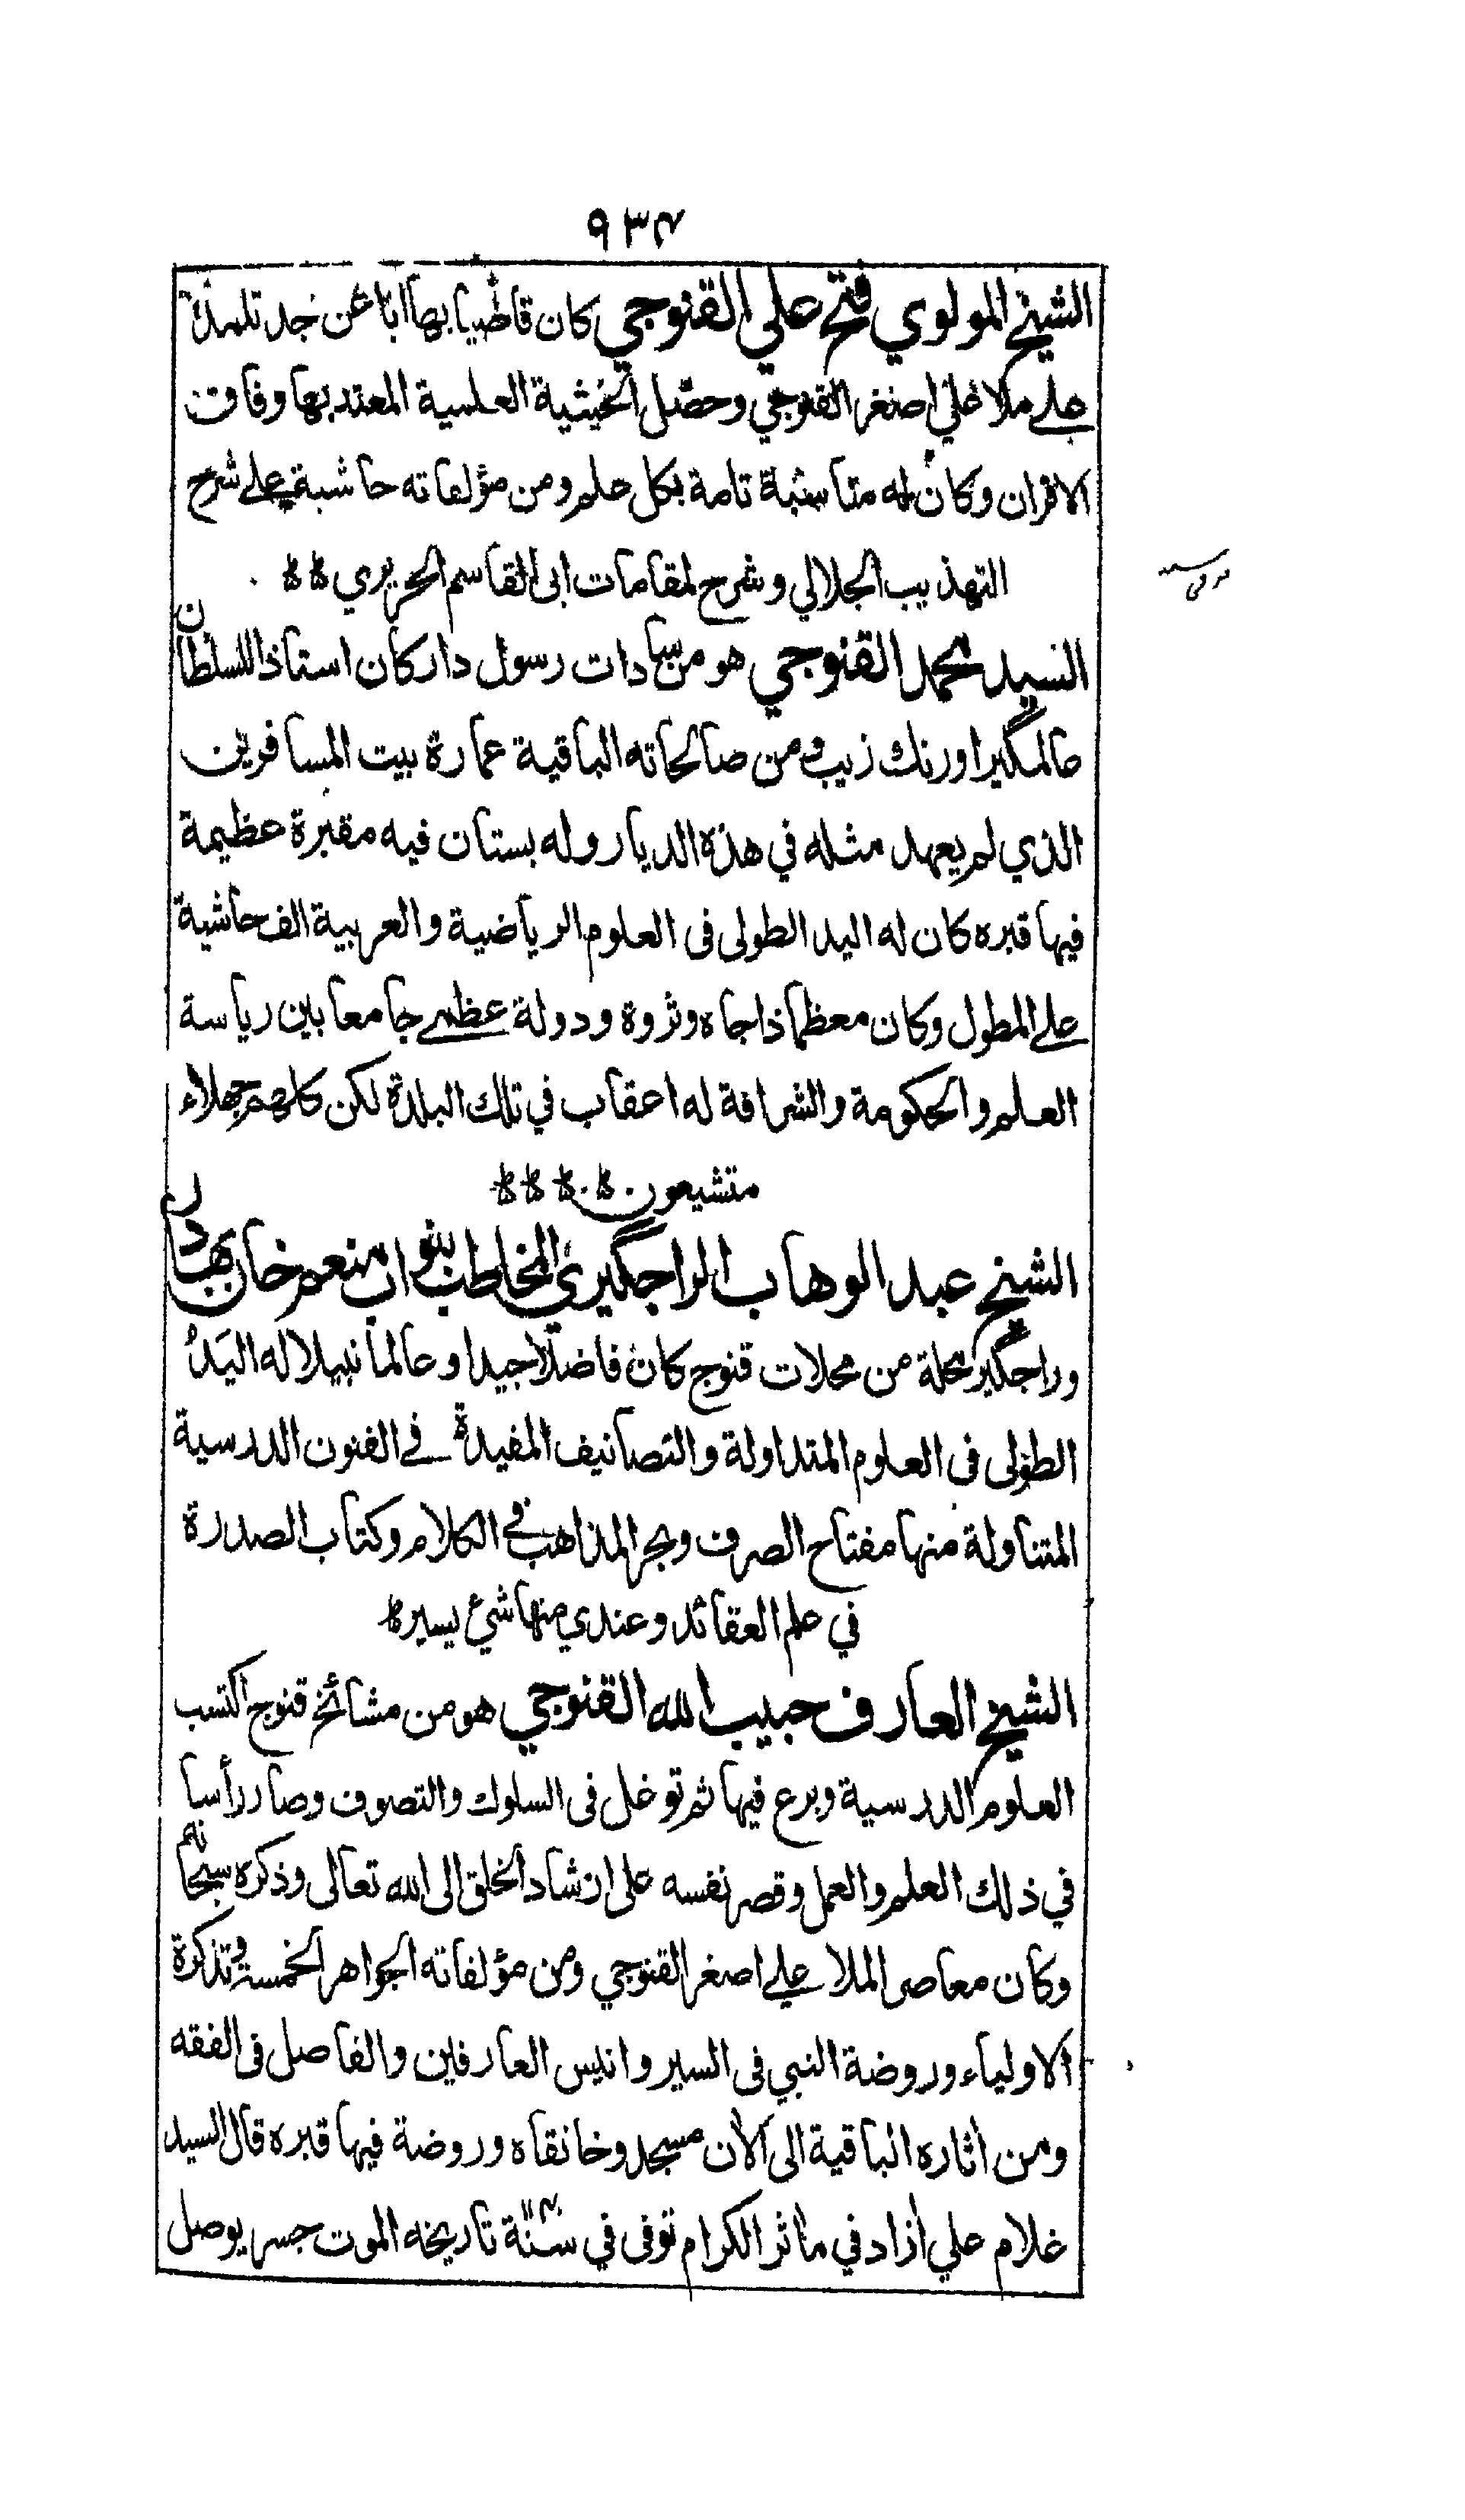 ٩٣٤
الشيخ المولوي فتح علي القنوجي كان قاضيا بها ابا عن جد تلمذ
علے ملا علي اصغر القنوجي وحصّل الحيثية العلمية المعتد بها وفاق
الاقران وكان له مناسبة تامة بكل علم ومن مؤلفاته حاشية علے شرح
التهذيب الجلالي وشرح لمقامات ابى القاسم الحريري
السيد محمد القنوجي هو من سادات رسول دار كان استاذا للسلطان
عالمگير اورنك زيب ومن صالحاته الباقية عمارة بيت المسافرين
الذي لم يعهد مثله في هذه الديار وله بستان فيه مقبرة عظيمة
فيها قبره كان له اليد الطولى فى العلوم الرياضية والعربية الف حاشية
علے المطول وكان معظما ذا جاه وثروة ودولة عظمے جامعا بين رياسة
العلم والحكومة والشرافة له اعقاب في تلك البلدة لكن كلهم جهلاء
متشيعون
الشيخ عبد الوهاب الراجگيري المخاطب بنواب منعم خان بهادر
وراجگير محلة من محلات قنوج كان فاضلا جيدا وعالما نبيلا له اليَدُ
الطولى فى العلوم المتداولة والتصانيف المفيدة فے الفنون الدرسية
المتناولة منها مفتاح الصرف وبحر المذاهب فے الكلام وكتاب الصدرة
في علم العقائد وعندي منها شيء يسير
الشيخ العارف حبيب الله القنوجي هو من مشائخ قنوج اكتسب
العلوم الدرسية وبرع فيها ثم توغل فى السلوك والتصوف وصار رأسا
في ذلك العلم والعمل وقصر نفسه على ارشاد الخلق الى الله تعالى وذكره سبحانه
وكان معاصر الملا علے اصغر القنوجي ومن مؤلفاته الجواهر الخمسة وتذكرة
الاولياء وروضة النبي فى السير وانيس العارفين والفاصل فى الفقه
ومن اثاره الباقية الى الآن مسجد وخانقاه وروضة فيها قبره قال السيد
غلام علي آزاد في مآثر الكرام توفى في سنة تاريخه الموت جسر يوصل